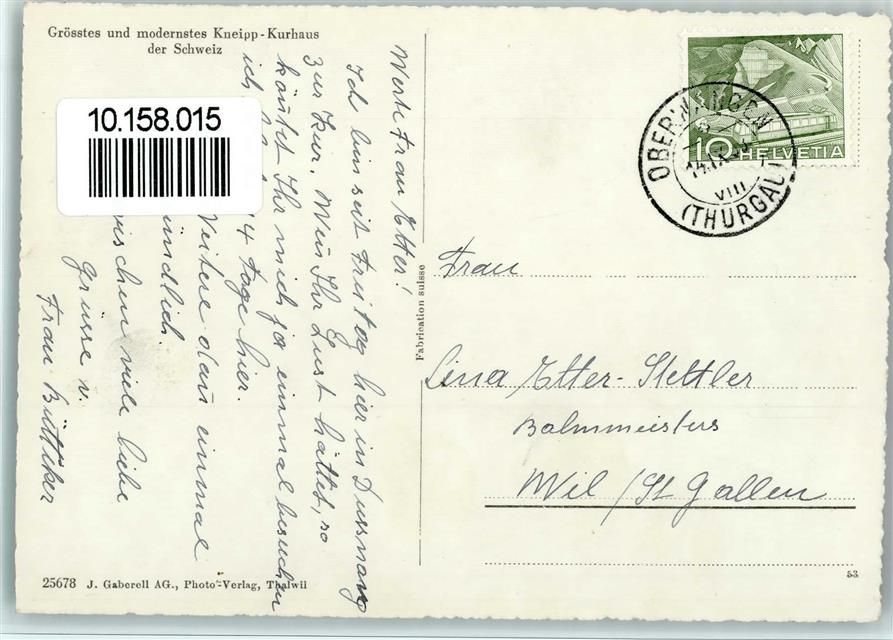 Grösstes und modernstes Kneipp-Kurhaus
der Schweiz
10.158.015
Werte Frau Etter!
Ich bin seit Freitag hier in Dussnang
zur Kur. Wen Ihr Lust hättet, so
könntet Ihr mich ja einmal besuchen
ich 4 Tage hier.
Weitere dan einmal
mündlich.
wischen viele liebe
Grüsse v.
Frau Bütiker
Fabrication suisse
10 HELVETIA
OBERWANGEN
14.IX.
VIII
(THURGAU)
Frau
Lina Etter-Stettler
Bahnmeisters
Wil / St Gallen
25678 J. Gaberell AG., Photo-Verlag, Thalwil
53